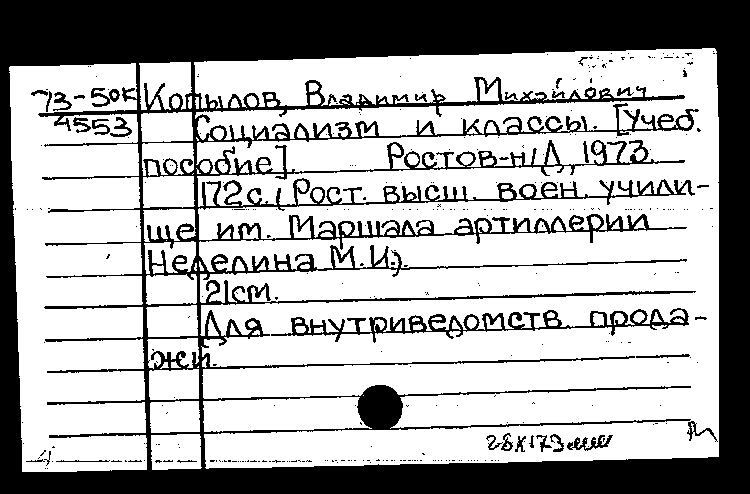 73-50К Копылов, Владимир Михайлович
4553 Социализм и классы. [Учеб.
пособие]. Ростов-н/Д, 1973.
172 с. (Рост. высш. воен. учили-
ще им. Маршала артиллерии
Неделина М.И.).
21см.
Для внутриведомств. прода-
жи.